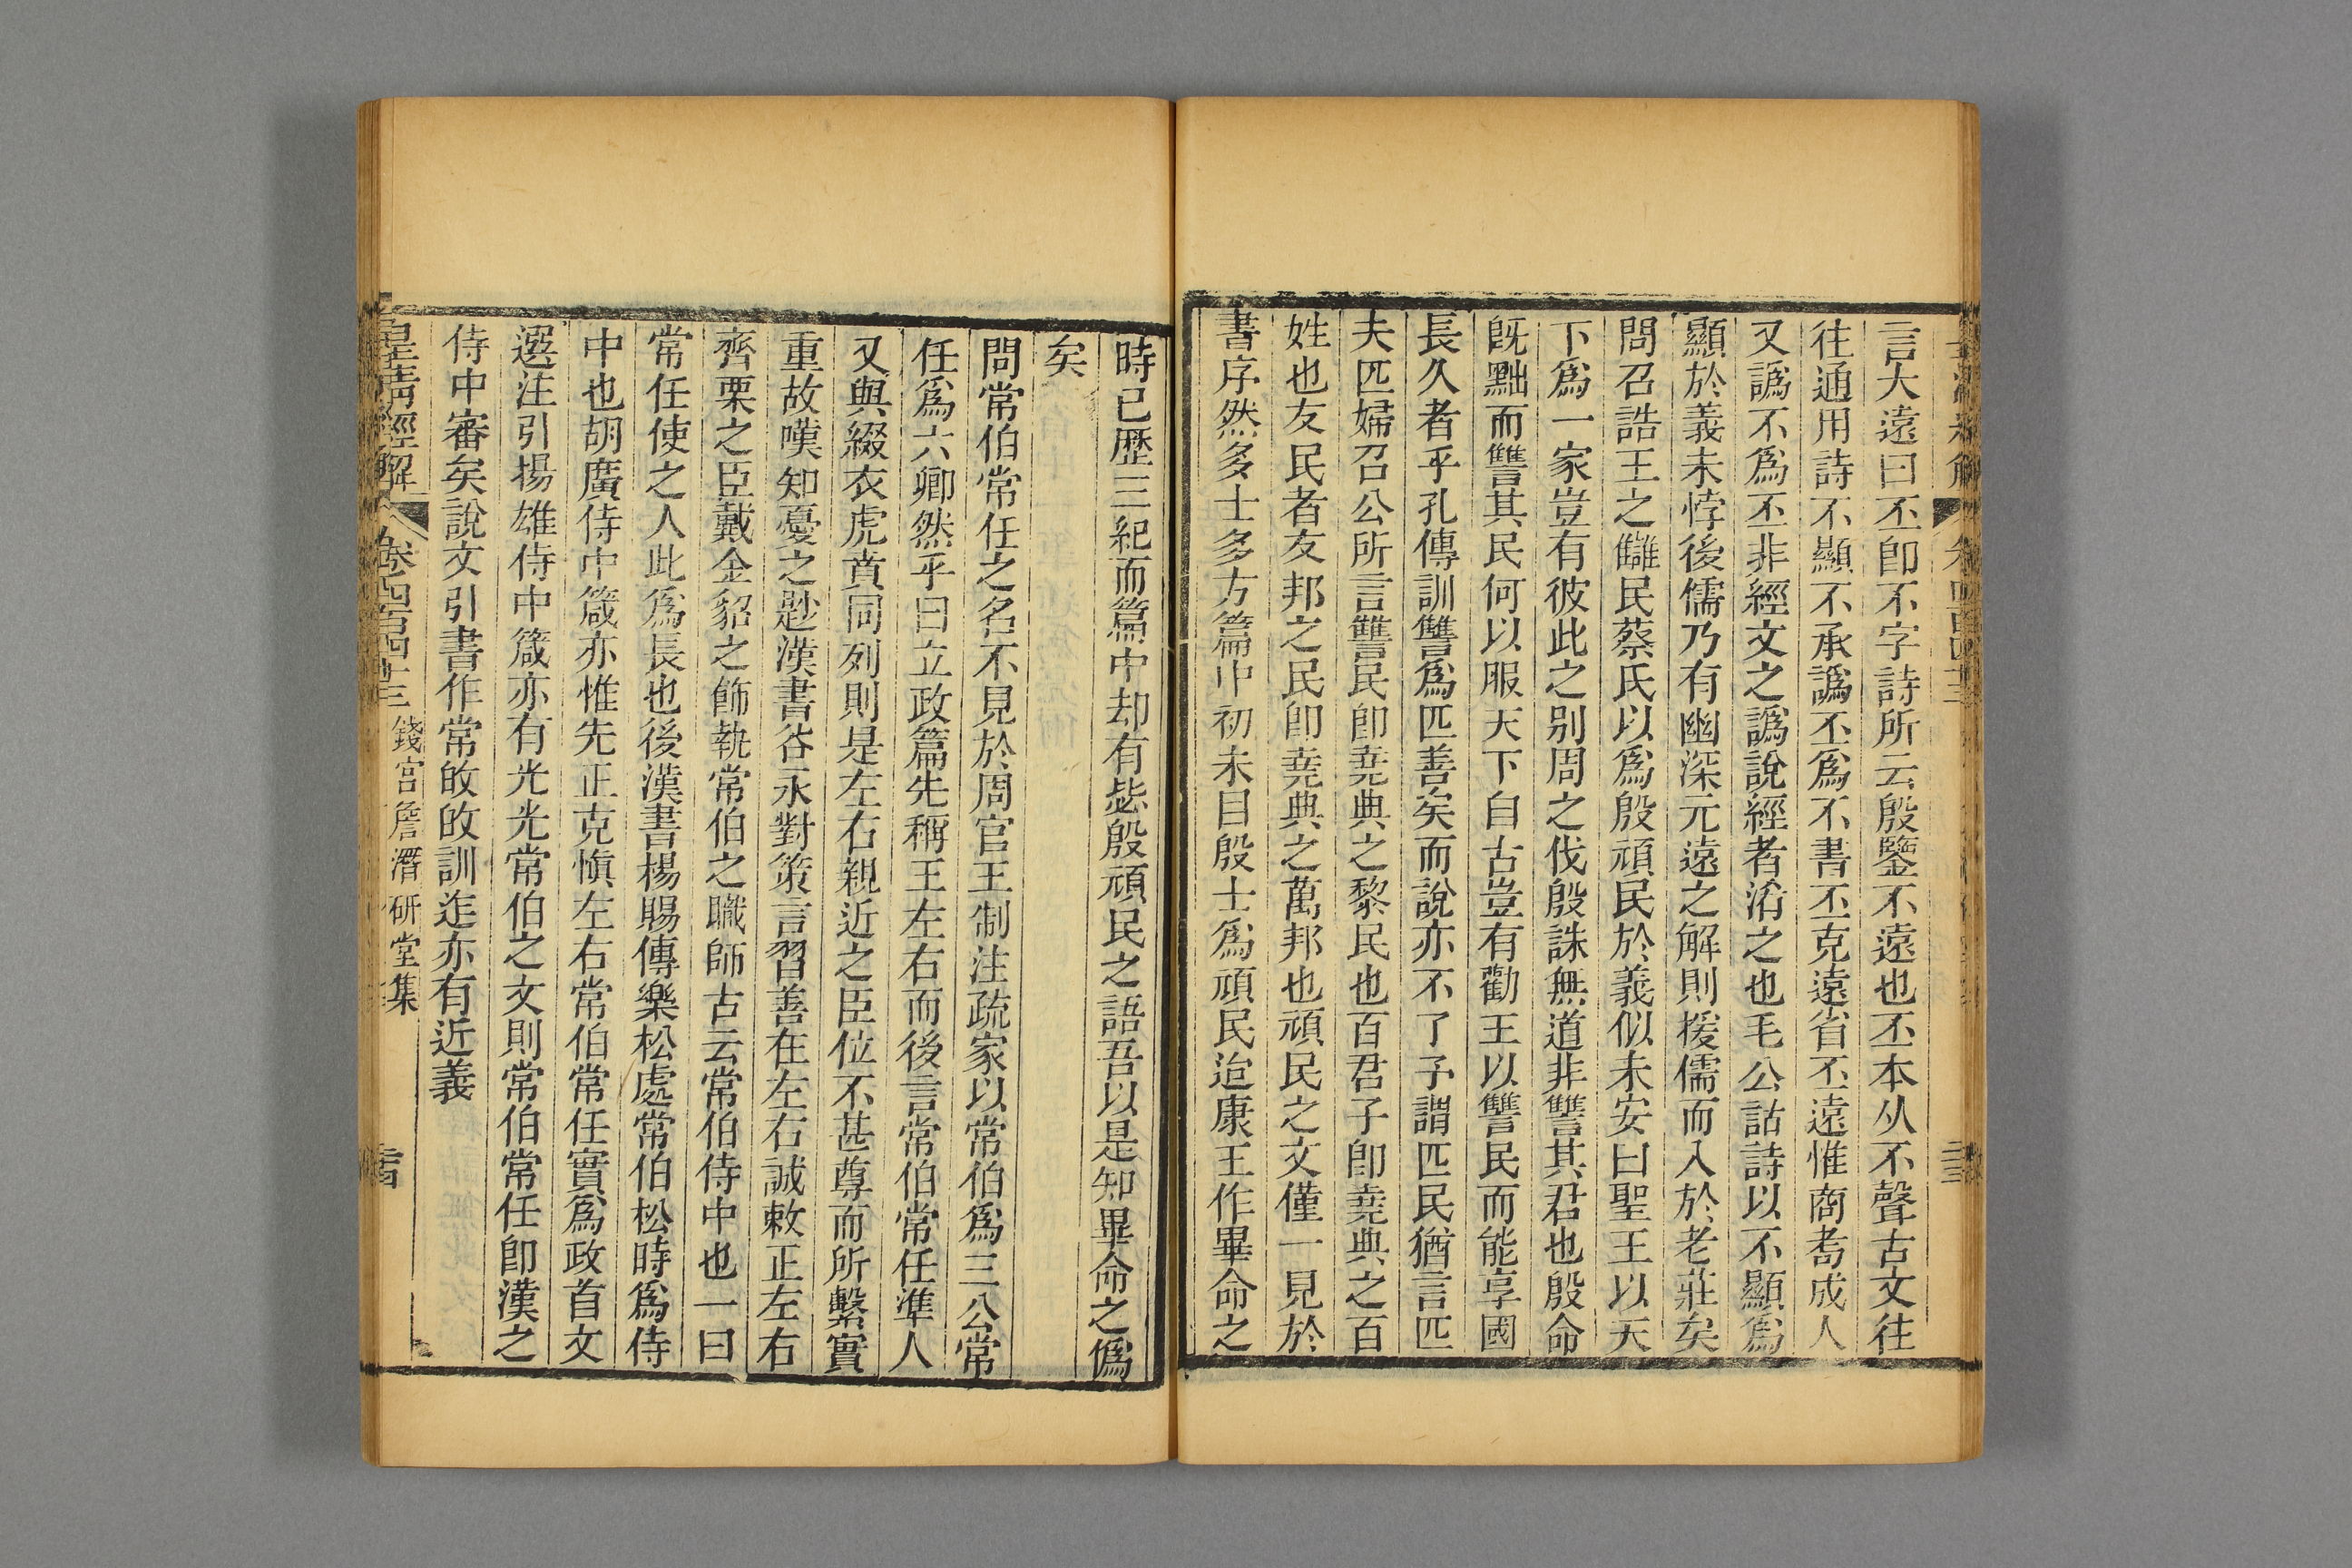 言大遠曰不卽不字詩所云殷鑒不遠也丕本从不聲古文往
往通用詩不顯不承譌丕爲不書丕克遠省丕遠惟商耉成人
又譌不爲丕非經文之譌說經者淆之也毛公詁詩以不顯爲
顯於義未悖後儒乃有幽深元遠之解則援儒而入於老莊矣
問召誥王之讎民蔡氏以爲殷頑民於義似未安曰聖王以天
下爲一家豈有彼此之別周之伐殷誅無道非讐其君也殷命
旣黜而讐其民何以服天下自古豈有勸王以讐民而能享國
長久者乎孔傳訓讐爲匹善矣而說亦不了予謂匹民猶言匹
夫匹婦召公所言讐民卽堯典之黎民也百君子卽堯典之百
姓也友民者友邦之民卽堯典之萬邦也頑民之文僅一見於
書序然多士多方篇中初未目殷士爲頑民迨康王作畢命之
時已歷三紀而篇中却有毖殷頑民之語吾以是知畢命之僞
矣
問常伯常任之名不見於周官王制注疏家以常伯爲三公常
任爲六卿然乎曰立政篇先稱王左右而後言常伯常任準人
又與綴衣虎賁同列則是左右親近之臣位不甚尊而所繫實
重故嘆知憂之尠漢書谷永對策言習善在左右誠敕正左右
齊栗之臣戴金貂之飾執常伯之職師古云常伯侍中也一曰
常任使之人此爲長也後漢書楊賜傳樂松處常伯松時爲侍
中也胡廣侍中箴亦惟先正克愼左右常伯常任實爲政首文
選注引揚雄侍中箴亦有光光常伯之文則常伯常任卽漢之
侍中審矣說文引書作常敀敀訓迮亦有近義
皇淸經解 卷四百四十三 錢宫詹潛研堂集